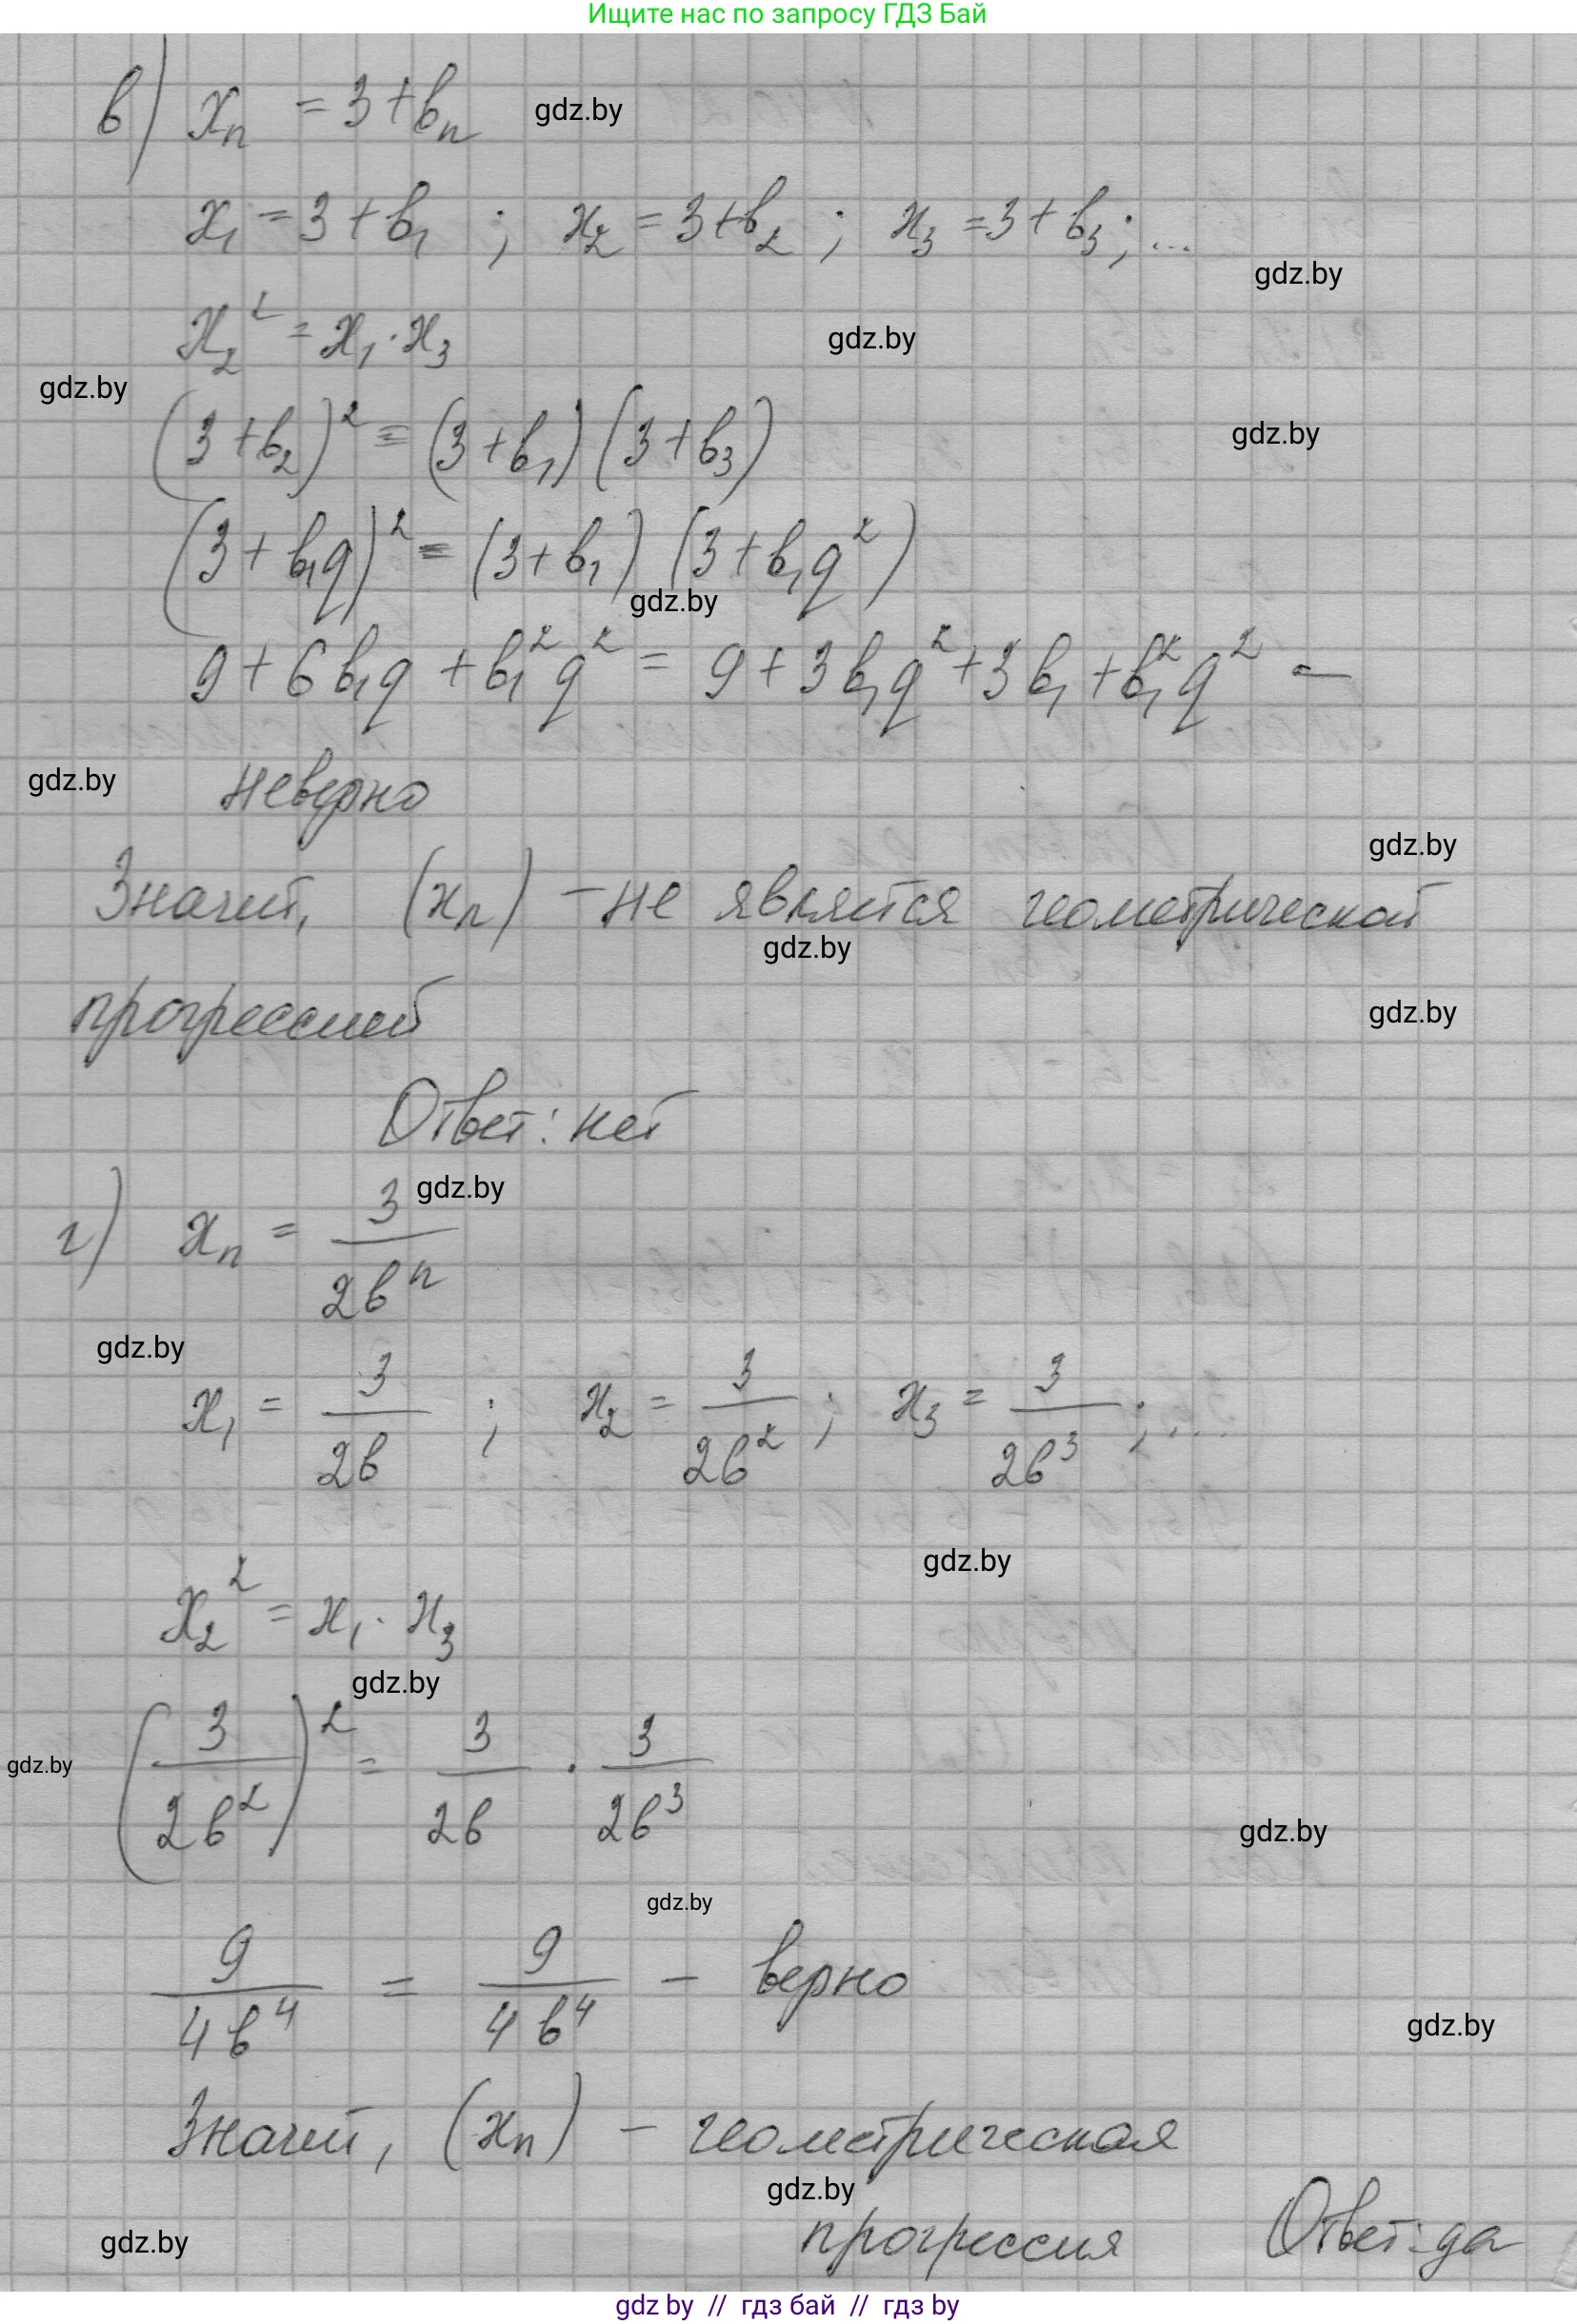 Ищите нас по запросу ГДЗ Бай
в) xₙ = 3 + bₙ gdz.by
x₁ = 3 + b₁ ; x₂ = 3 + b₂ ; x₃ = 3 + b₃ ; ...
gdz.by
x₂² = x₁ · x₃ gdz.by
gdz.by
(3 + b₂)² = (3 + b₁)(3 + b₃) gdz.by
(3 + b₁q)² = (3 + b₁)(3 + b₁q²)
gdz.by
9 + 6b₁q + b₁²q² = 9 + 3b₁q² + 3b₁ + b₁²q² –
gdz.by неверно
gdz.by
Значит, (xₙ) – не является геометрической
gdz.by
прогрессией gdz.by
Ответ: нет
г) xₙ = 3/(2bⁿ) gdz.by
gdz.by
x₁ = 3/(2b) ; x₂ = 3/(2b²) ; x₃ = 3/(2b³) ; ...
gdz.by
x₂² = x₁ · x₃
gdz.by
gdz.by (3/(2b²))² = 3/(2b) · 3/(2b³)
gdz.by
gdz.by
9/(4b⁴) = 9/(4b⁴) – верно
gdz.by
Значит, (xₙ) – геометрическая
gdz.by
gdz.by прогрессия Ответ: да
gdz by // гдз бай // гдз by